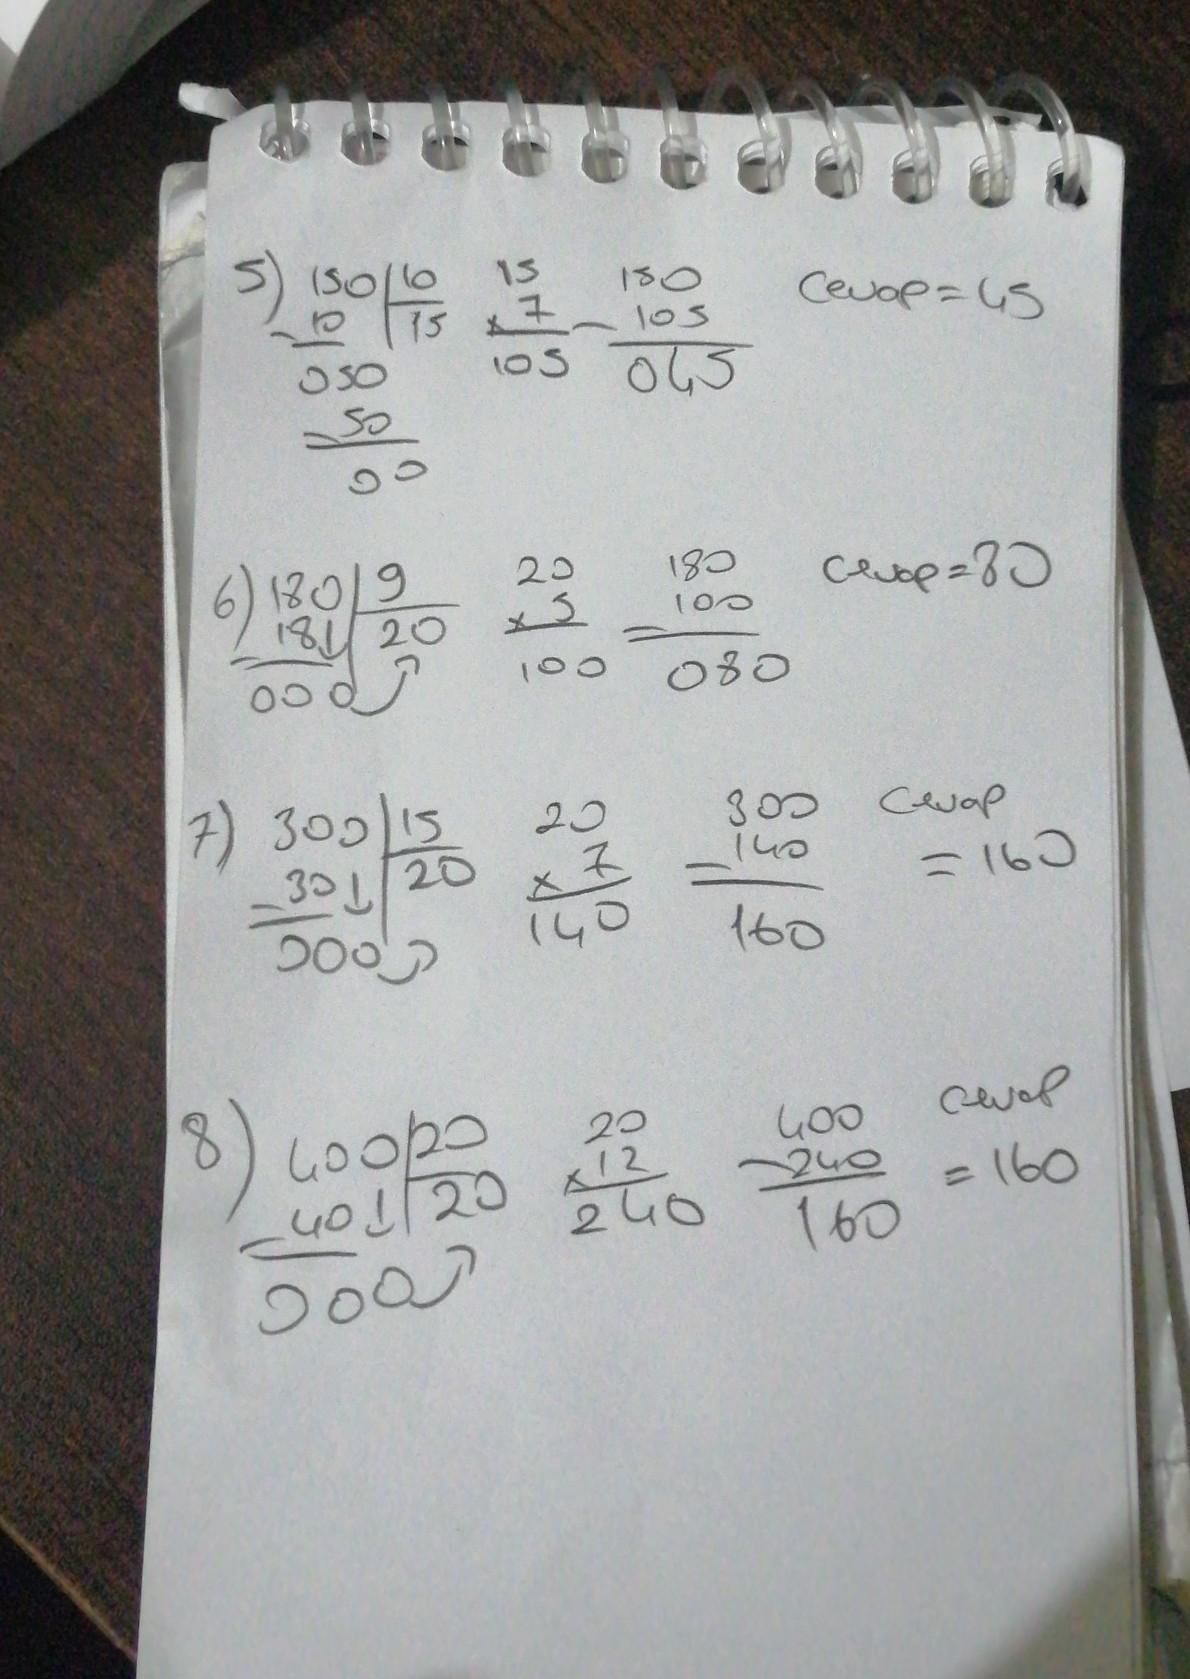 5) 150 10 15 150 Cevap = 45
-10 15 x 7 - 105
050 105 045
- 50
00
6) 180 9 20 180 Cevap = 80
- 18↓ 20 x 5 - 100
000 100 080
7) 300 15 20 300 Cevap
- 30↓ 20 x 7 - 140 = 160
000 140 160
8) 400 20 20 400 Cevap
- 40↓ 20 x 12 - 240 = 160
000 240 160